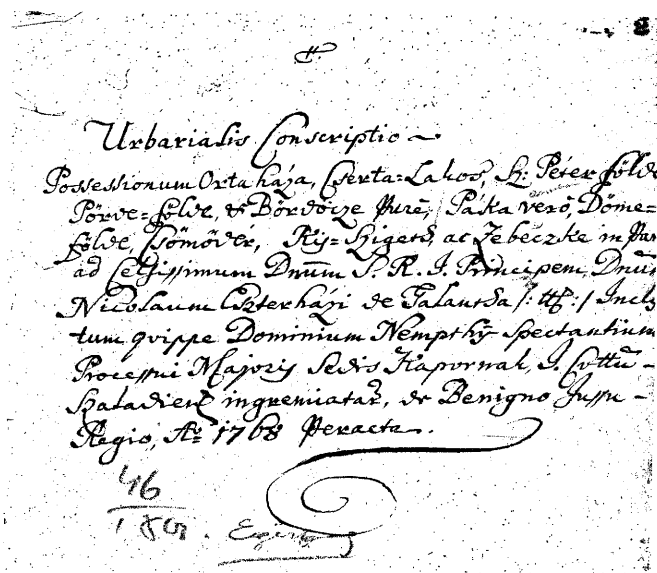 8
Urbarialis Conscriptio
Possessionum Ortaháza, Cserta=Lakos, Sz: Péter földe
Pörde=földe, & Bördőcze Purè, Páka verò, Döme-
földe, Csömödér, Kis=Szigeth, ac Zebeczke in Par
ad Celsissimum Dnum S. R. I. Principem, Dnum
Nicolaum Eszterházi de Galantha /: :/ Incly
tum qvippe Dominium Nempthy Spectantium
Processui Majoris Sedis Kapornak, I. Cottu-
Szaladiens ingremiatar, de Benigno Jussu-
Regio, Ao 1768 Peracta.
46